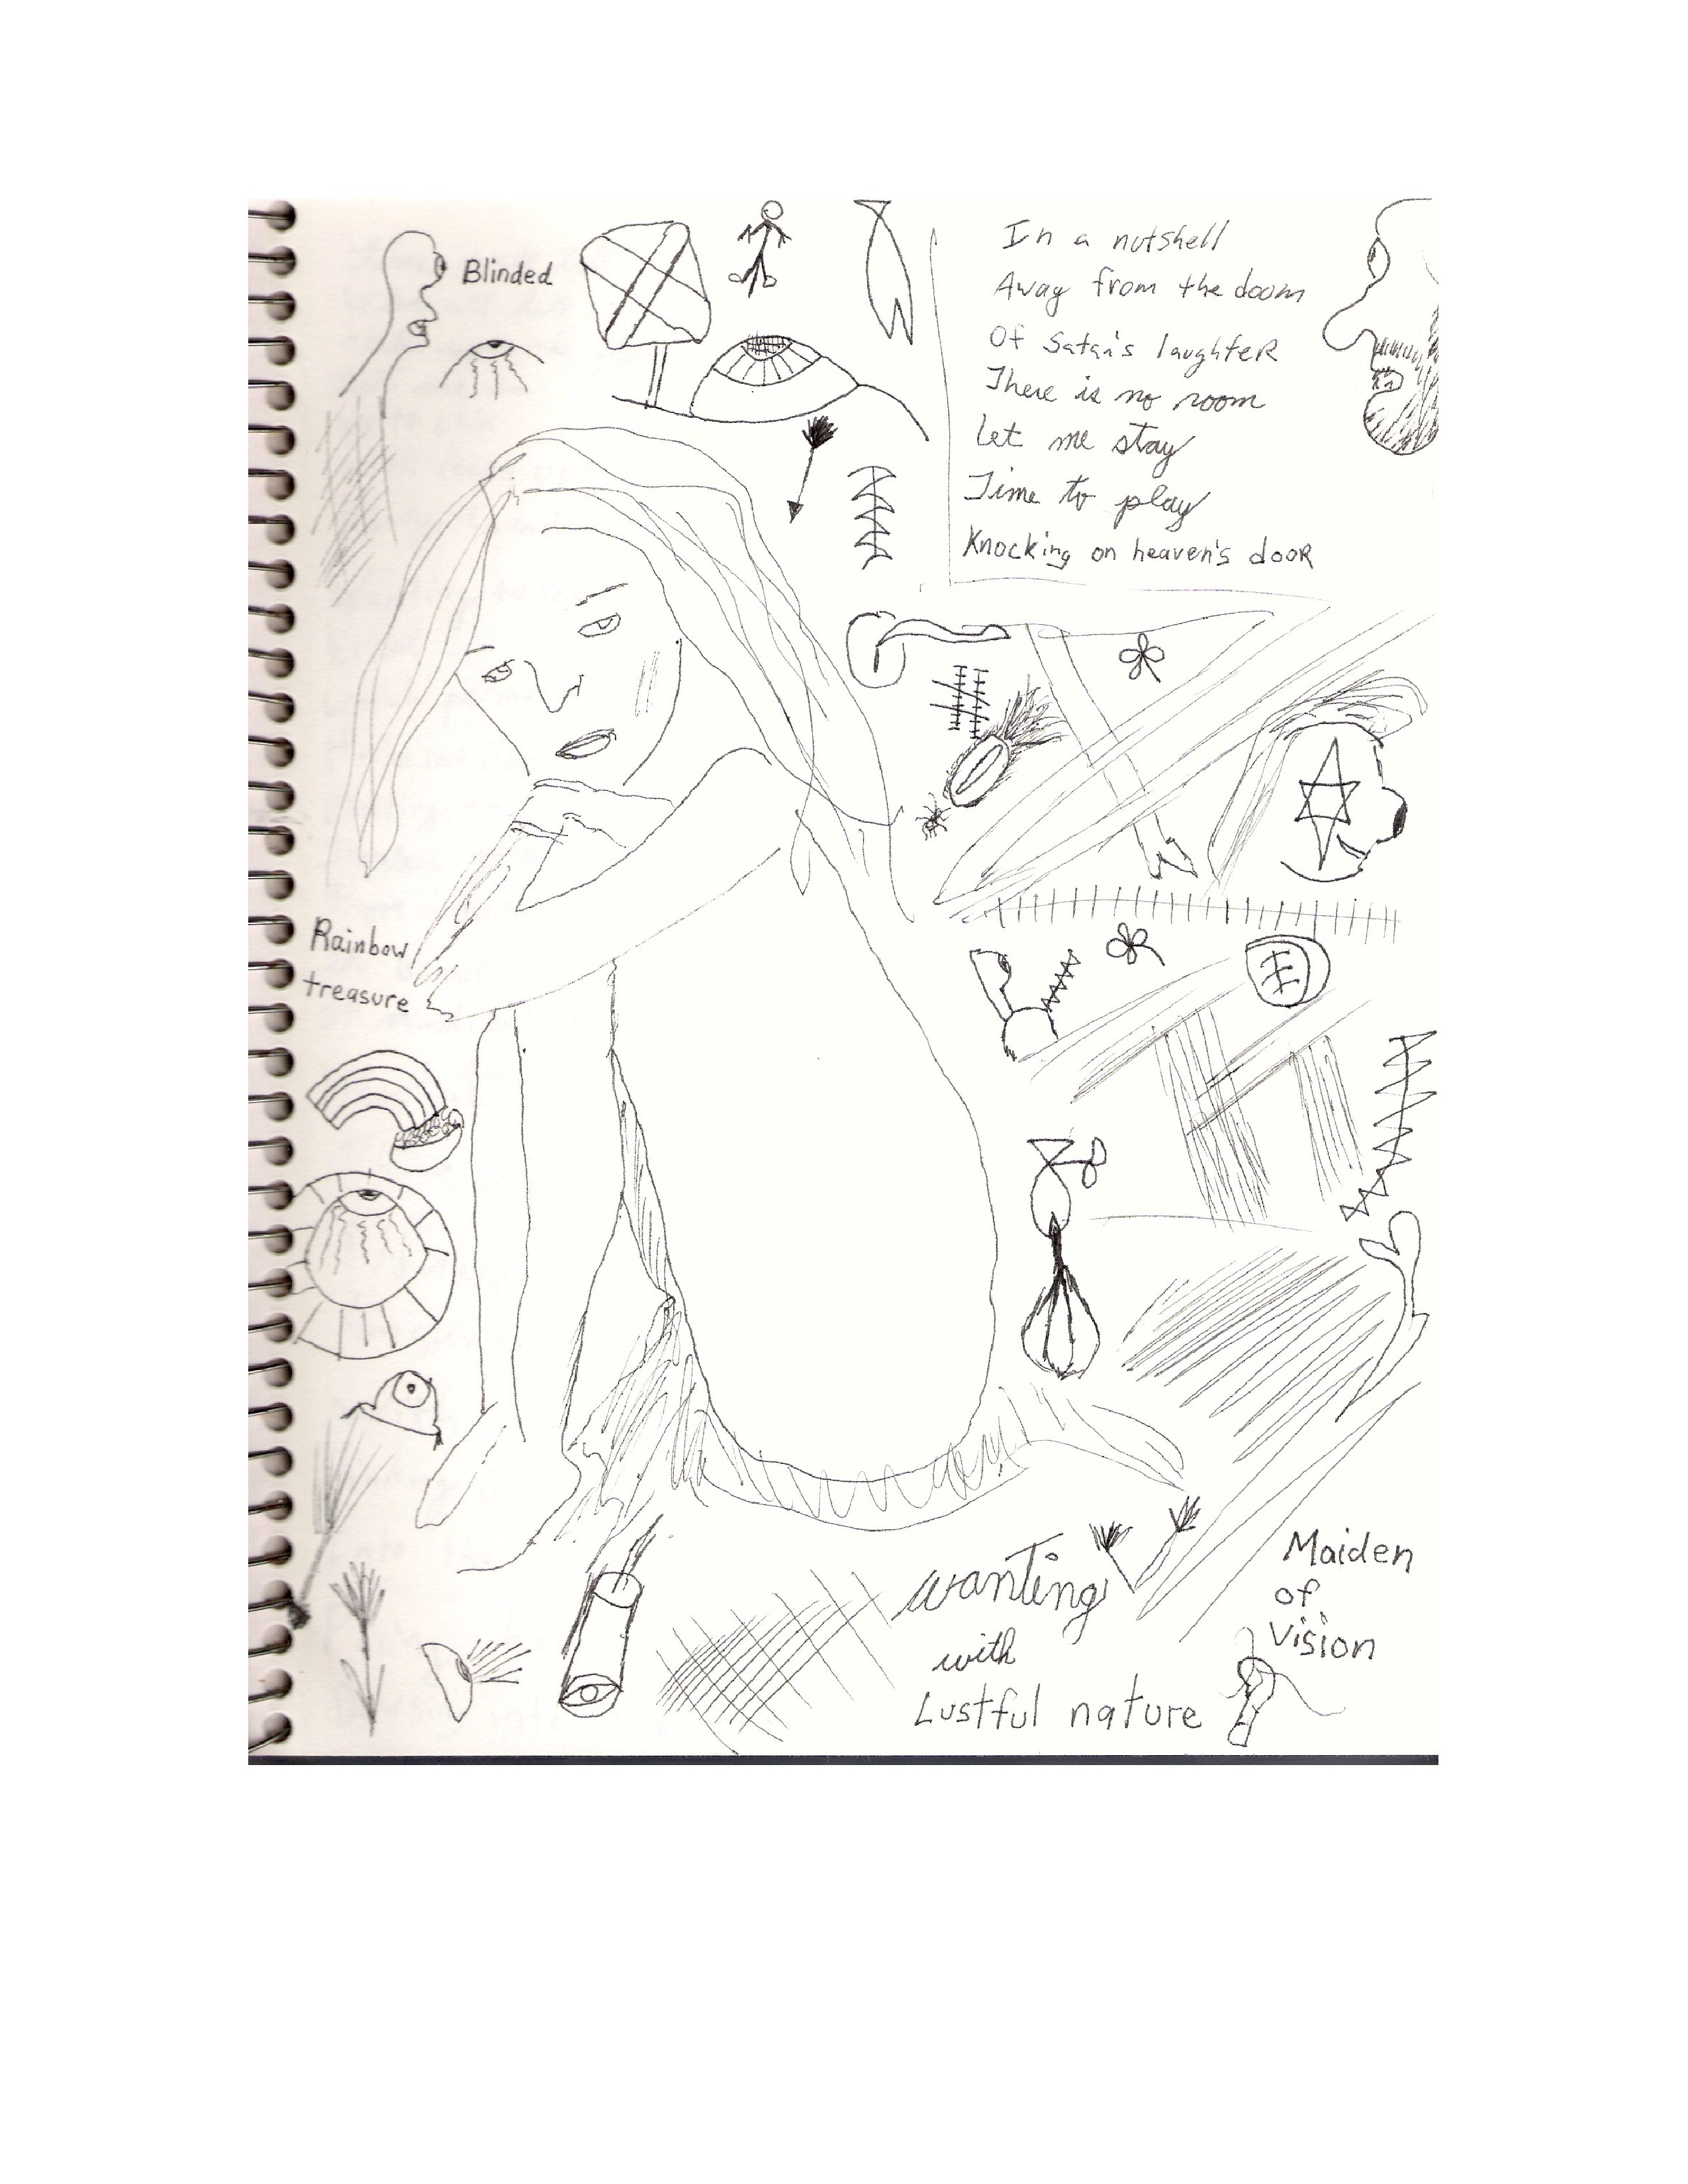 Blinded
In a nutshell
Away from the doom
Of Satan's laughter
There is no room
Let me stay
Time to play
Knocking on heaven's door
Rainbow
treasure
wanting
with
Lustful nature
Maiden
of
Vision